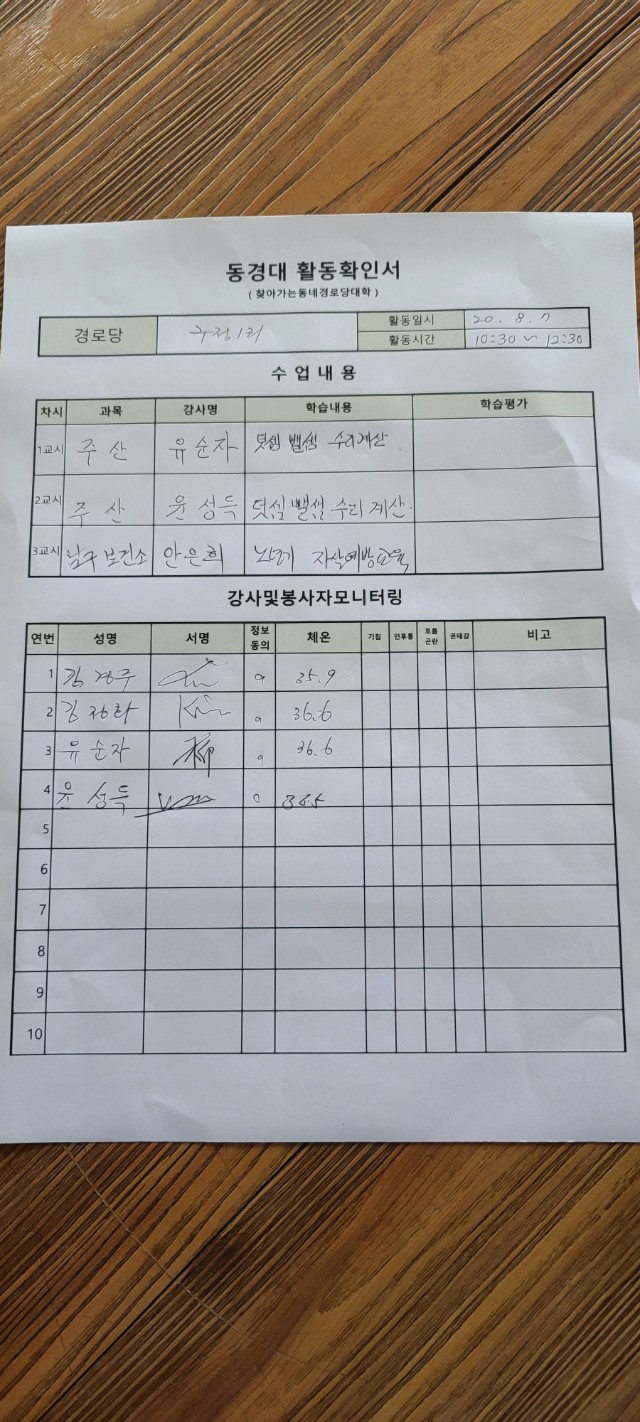 동경대 활동확인서
( 찾아가는동네경로당대학 )
경로당 구정1리 활동일시 20. 8. 7
활동시간 10:30 ~ 12:30
수 업 내 용
차시 과목 강사명 학습내용 학습평가
1교시 주 산 유순자 덧셈 뺄셈 수리계산
2교시 주 산 윤성득 덧셈 뺄셈 수리 계산.
3교시 남구보건소 안은희 자살예방교육
강사및봉사자모니터링
연번 성명 서명 정보동의 체온 기침 인후통 호흡곤란 권태감 비고
1 김경주 o 35.9
2 김정화 Kim o 36.6
3 유순자 柳 o 36.6
4 윤성득 o 36.5
5
6
7
8
9
10